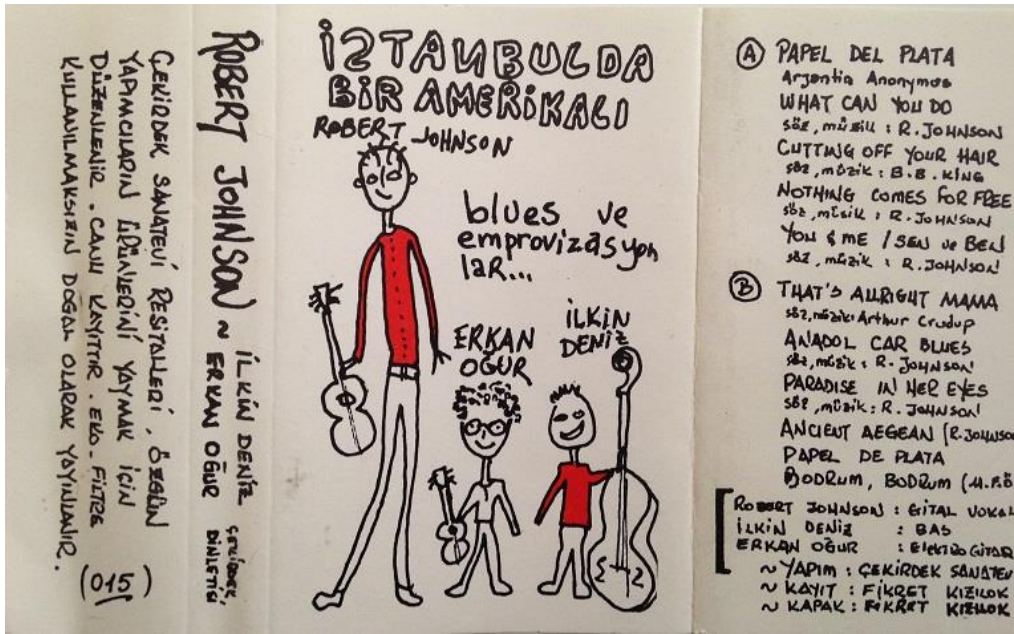 ÇEKİRDEK SANATEVİ RESİTALLERİ, ÖZGÜN
YAPIMCILARIN ÜRÜNLERİNİ YAYMAK İÇİN
DÜZENLENİR. CANLI KAYITTIR. EKO-FİLTRE
KULLANILMAKSIZIN DOĞAL OLARAK YAYINLANIR.
(015)
ROBERT JOHNSON ~ İLKİN DENİZ
ERKAN OĞUR
ÇEKİRDEK,
DİNLETİSİ
İSTANBULDA
BİR AMERİKALI
ROBERT JOHNSON
blues ve
emprovizasyon
lar...
ERKAN
OĞUR
İLKİN
DENİZ
A PAPEL DEL PLATA
Argentia Anonymos
WHAT CAN YOU DO
söz, müzik : R. JOHNSON
CUTTING OFF YOUR HAIR
söz, müzik : B.B. KING
NOTHING COMES FOR FREE
söz, müsik : R. JOHNSON
YOU & ME / SEN ve BEN
söz, müzik : R. JOHNSON
B THAT'S ALLRIGHT MAMA
söz, müzik: Arthur Crudup
ANADOL CAR BLUES
söz, müzik : R. JOHNSON
PARADISE IN HER EYES
söz, müzik : R. JOHNSON
ANCIENT AEGEAN (R. JOHNSO
PAPEL DE PLATA
BODRUM, BODRUM (M.F.Ö
ROBERT JOHNSON : GİTAL VOKAL
İLKİN DENİZ : BAS
ERKAN OĞUR : ELEKTRO GİTAR
~ YAPIM : ÇEKİRDEK SANATEV
~ KAYIT : FİKRET KIZILOK
~ KAPAK : FİKRET KIZILOK